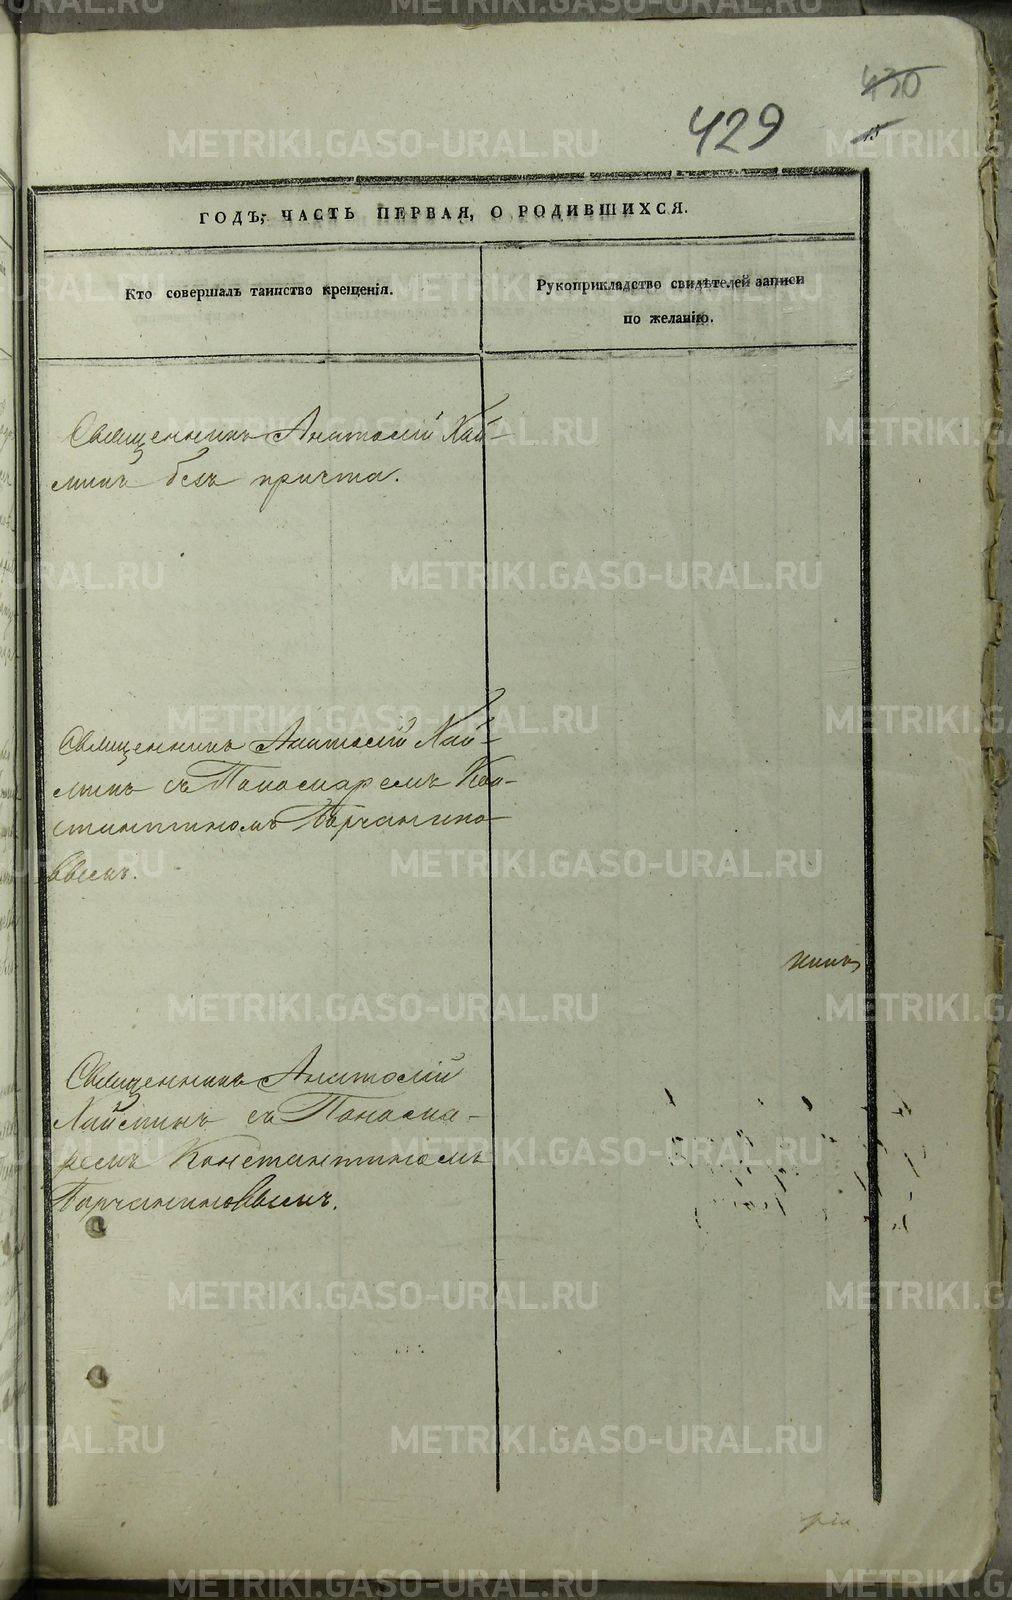 430
429
ГОДЪ, ЧАСТЬ ПЕРВАЯ, О РОДИВШИХСЯ.
Кто совершалъ таинство крещенія.
Рукоприкладство свидѣтелей записи
по желанію.
Священникъ Анатолій Хай-
минъ безъ причта.
Священникъ Анатолій Хай-
минъ съ Пономаремъ Кон-
стантиномъ
Священникъ Анатолій
Хайминъ съ Понома-
ремъ Константиномъ
METRIKI.GASO-URAL.RU